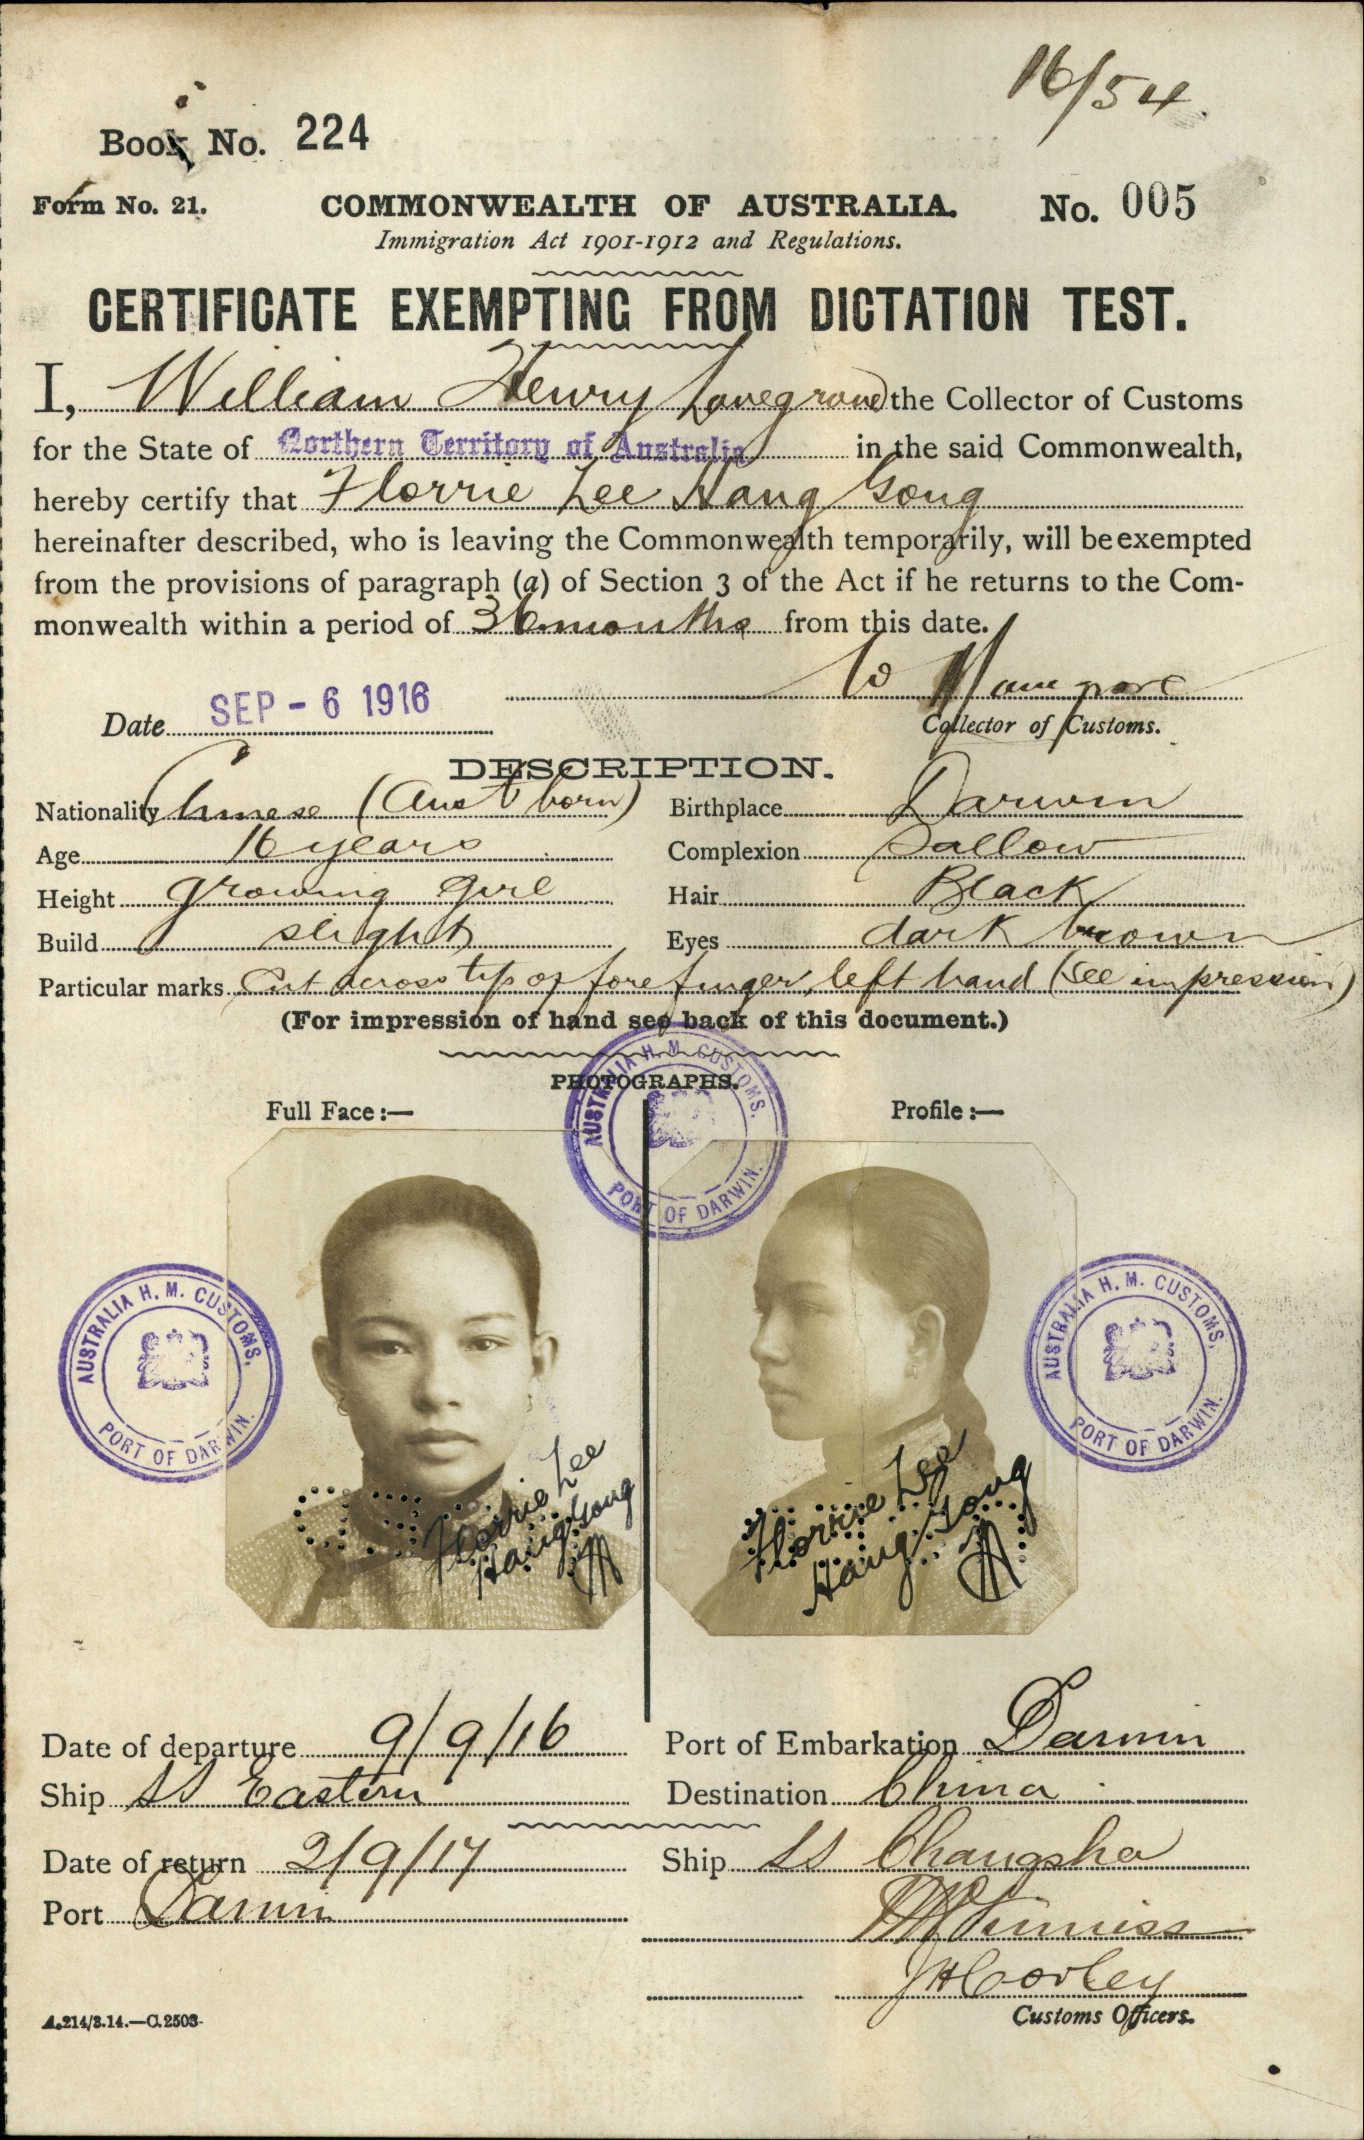 16/54.
Book No. 224
Form No. 21. COMMONWEALTH OF AUSTRALIA. No. 005
Immigration Act 1901-1912 and Regulations.
CERTIFICATE EXEMPTING FROM DICTATION TEST.
I, William Henry the Collector of Customs
for the State of Northern Territory of Australia in the said Commonwealth,
hereby certify that Florrie Lee Hang Gong
hereinafter described, who is leaving the Commonwealth temporarily, will be exempted
from the provisions of paragraph (a) of Section 3 of the Act if he returns to the Com-
monwealth within a period of 36 months from this date.
Date SEP - 6 1916
Collector of Customs.
DESCRIPTION.
Nationality Chinese (Aust born) Birthplace Darwin
Age 16 years Complexion Sallow
Height growing girl Hair Black
Build slight Eyes dark brown
Particular marks Cut across tip of forefinger, left hand (See impression)
(For impression of hand see back of this document.)
PHOTOGRAPHS.
Full Face:— Profile:—
AUSTRALIA H. M. CUSTOMS. PORT OF DARWIN.
AUSTRALIA H. M. CUSTOMS. PORT OF DARWIN.
AUSTRALIA H. M. CUSTOMS. PORT OF DARWIN.
Florrie Lee
Hang Gong
Florrie Lee
Hang Gong
Date of departure 9/9/16 Port of Embarkation Darwin
Ship SS Eastern Destination China
Date of return 2/9/17 Ship SS Changsha
Port Darwin
JH Corley
Customs Officers.
A.214/3.14.—C.2503